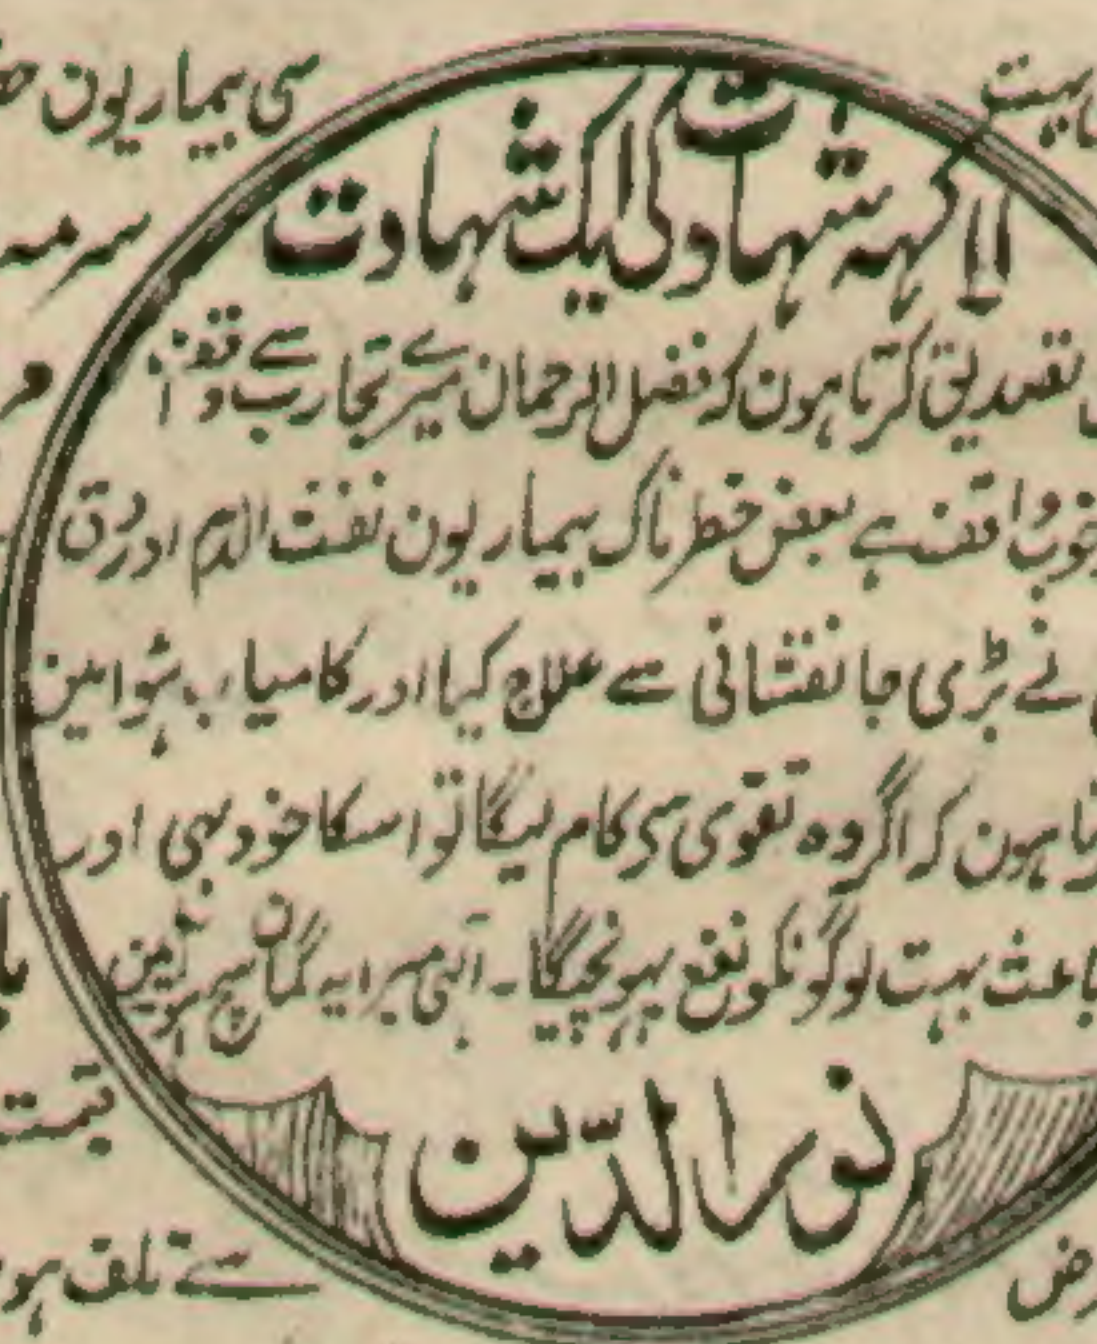 سی بیماریون
بہت
لاکہہ شہادتون کی ایک شہادت
سرمہ
تصدیق کرتا ہون کہ فضل الرحمان میرے تجارب سے
خوب واقف ہے بعض خطرناک بیماریون نفث الدم اور دق
نے بڑی جانفشانی سے علاج کیا اور کامیاب ہوا مین
ہون کہ اگر وہ تقوی سی کام لیگا تو اسکا خود بہی اور
باعث بہت لوگونکو نفع پہونچیگا ۔ آلہی میرا یہ گمان سچ ہو آمین
نور الدّین
قیمت
سے تلف ہو